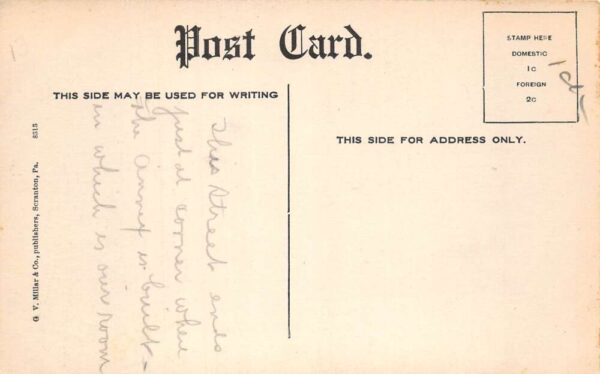 Post Card.
THIS SIDE MAY BE USED FOR WRITING
THIS SIDE FOR ADDRESS ONLY.
STAMP HERE
DOMESTIC
1c
FOREIGN
2c
This Street ends
just at corner where
the annex is built-
in which is our room
G. V. Millar & Co., publishers, Scranton, Pa. 8515